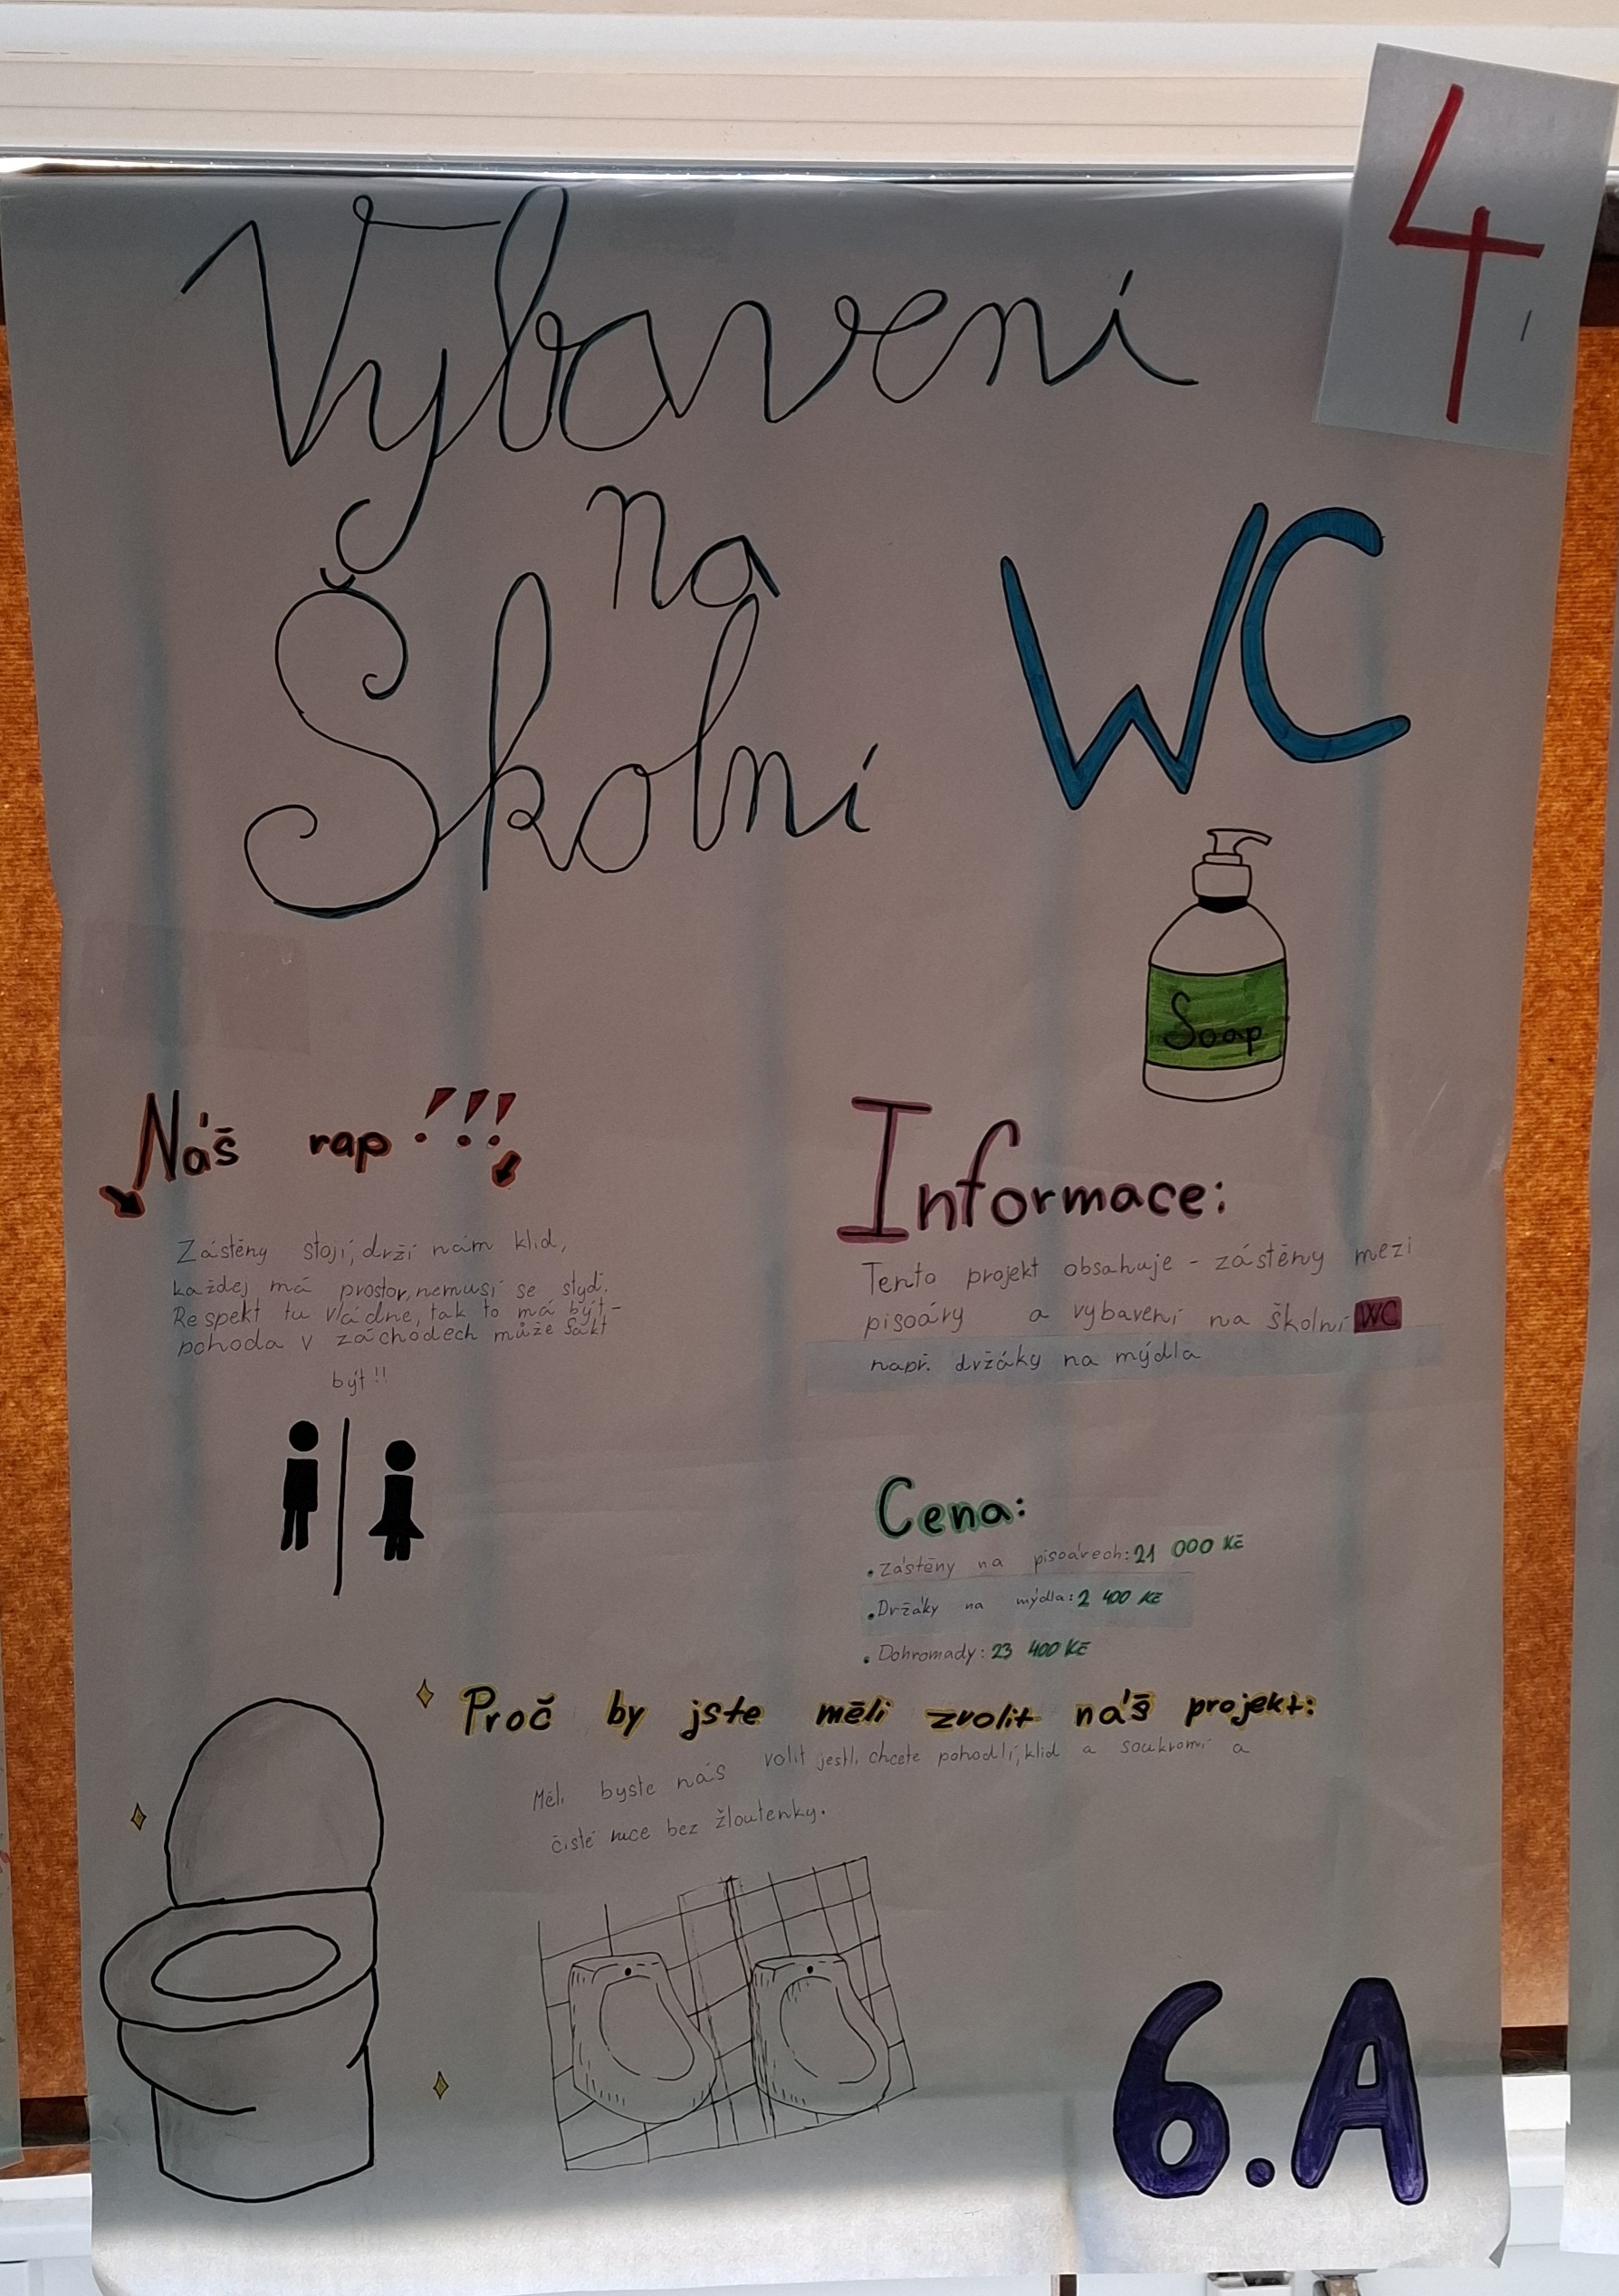 4.
Vybavení
na
Školní
WC
Soap
Náš rap!!!
Zástěny stojí, drží nám klid,
každej má prostor, nemusí se stydť.
Respekt tu vládne, tak to má být-
pohoda v záchodech může fakt
být!!
Informace:
Tento projekt obsahuje - zástěny mezi
pisoáry a vybavení na školní WC
např. držáky na mýdla
Cena:
• Zástěny na pisoárech: 21 000 Kč
• Držáky na mýdla: 2 400 Kč
• Dohromady: 23 400 Kč
Proč by jste měli zvolit náš projekt:
Měli byste nás volit jestli chcete pohodlí, klid a soukromí a
čisté ruce bez žloutenky.
6.A